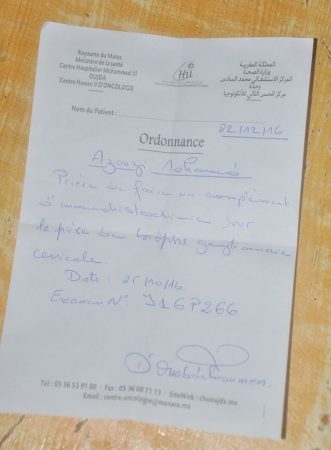 Royaume du Maroc
Ministère de la santé
Centre Hospitalier Mohammed VI
OUJDA
Centre Hassan II D'ONCOLOGIE
المملكة المغربية
وزارة الصحة
المركز الاستشفائي محمد السادس
وجدة
مركز الحسن الثاني للأنكولوجيا
Nom du Patient :
22/12/16
Ordonnance
Mohamed
Prière de faire un complément
d'immunohistochimie sur
la pièce de biopsie ganglionnaire
cervicale.
Date : 25/10/16
Examen N° J16P266
Tél : 05 36 53 91 00 - Fax : 05 36 68 71 13 - SiteWeb : chuoujda.ma
Email : centre.oncologie@menara.ma